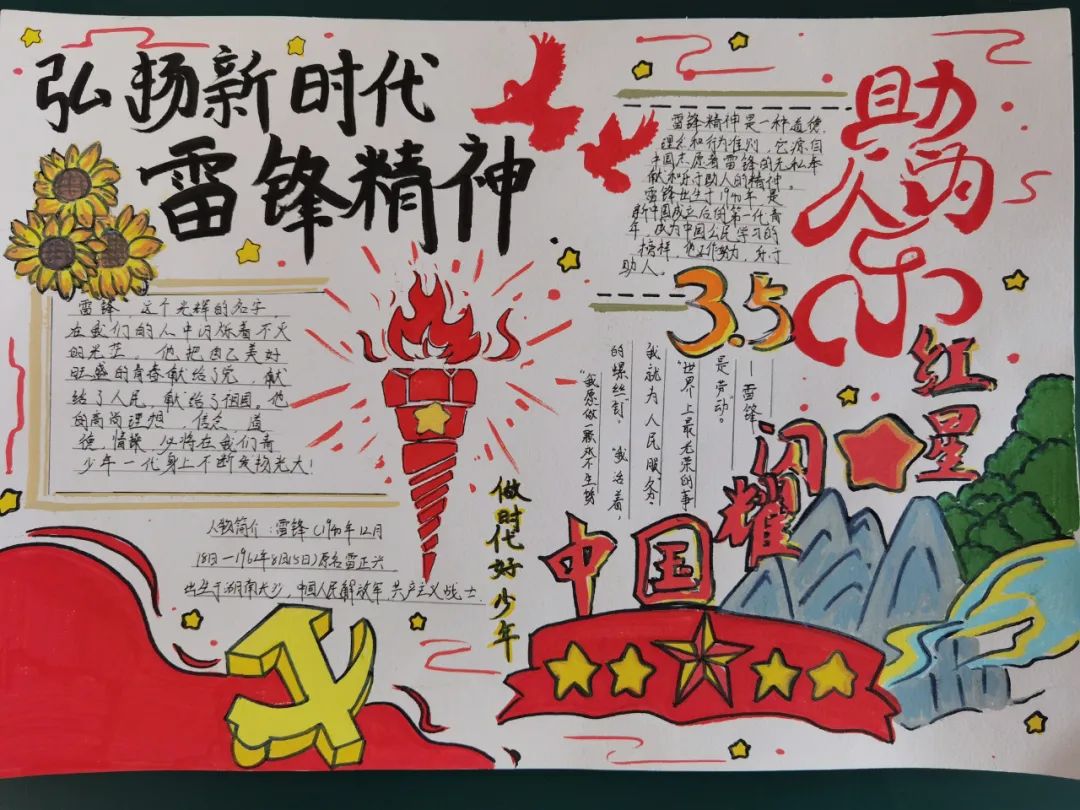 弘扬新时代
雷锋精神
雷锋，这个光辉的名字，
在我们的人中闪烁着不灭
的光芒。他把自己美好
旺盛的青春献给了党，献
给了人民，献给了祖国。他
的高尚理想、信念、道
德、情操，必将在我们青
少年一代身上不断发扬光大！
人物简介：雷锋（1940年12月
18日—1962年8月15日）原名雷正兴
出生于湖南长沙，中国人民解放军，共产主义战士
做时代好少年
雷锋精神是一种道德，
理念和行为准则，它源自
中国志愿者雷锋的无私奉
献和乐于助人的精神。
雷锋出生于1940年，是
新中国成立后的第一代青
年，成为中国公民学习的
榜样，他工作努力，乐于
助人。
助
人为
乐
3.5
—雷锋
是劳动”。
“世界上最光荣的事
我就为人民服务。
的螺丝钉。“我活着，
“我愿做一颗永不生锈
红星
闪耀
中国